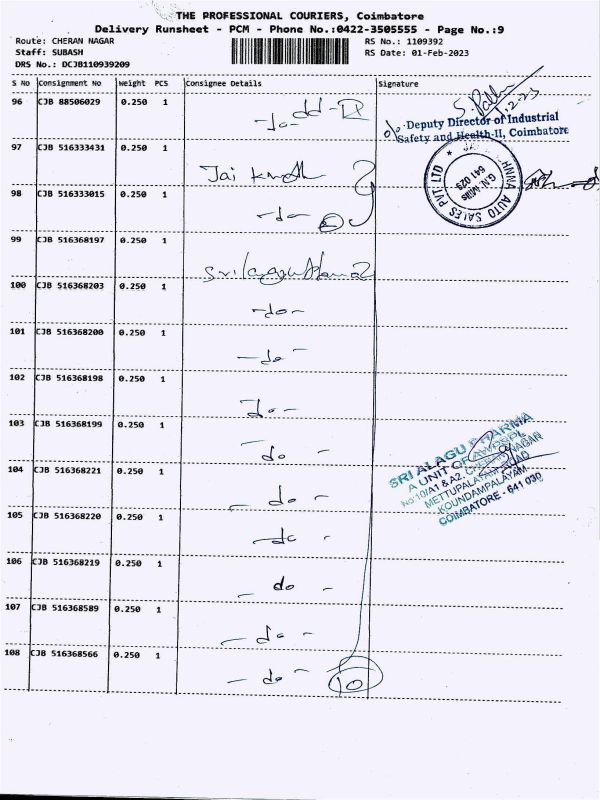 THE PROFESSIONAL COURIERS, Coimbatore
Delivery Runsheet - PCM - Phone No.:0422-3505555 - Page No.:9
Route: CHERAN NAGAR RS No.: 1109392
Staff: SUBASH RS Date: 01-Feb-2023
DRS No.: DCJB110939209
S No Consignment No Weight PCS Consignee Details Signature
96 CJB 88506029 0.250 1
-do-
Deputy Director of Industrial
Safety and Health-II, Coimbatore
97 CJB 516333431 0.250 1
Jai
98 CJB 516333015 0.250 1
-do- 2
AUTO SALES PVT. LTD
G.N. Mills
641 029
99 CJB 516368197 0.250 1
100 CJB 516368203 0.250 1
-do-
101 CJB 516368200 0.250 1
-do-
102 CJB 516368198 0.250 1
-do-
103 CJB 516368199 0.250 1
-do-
104 CJB 516368221 0.250 1
-do-
SRI ALAGU PHARMA
A UNIT OF
No:10/A1 & A2,
METTUPALAYAM ROAD
KOUNDAMPALAYAM
COIMBATORE - 641 030
105 CJB 516368220 0.250 1
-do-
106 CJB 516368219 0.250 1
- do -
107 CJB 516368589 0.250 1
- do -
108 CJB 516368566 0.250 1
- do - 10